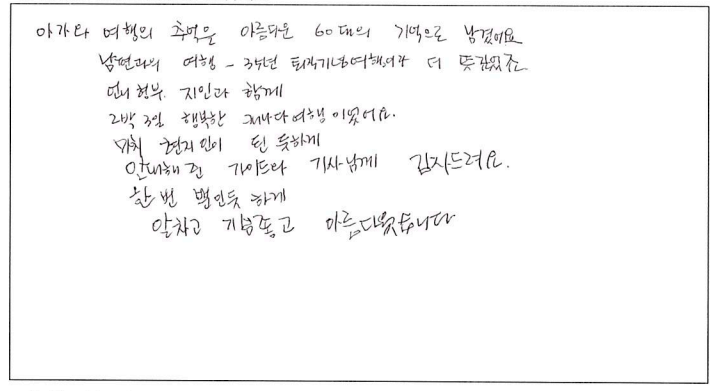 여행의 추억은 아름다운 60대의 기억으로 남겼어요
남편과의 여행 - 35년 퇴직기념여행이라 더 뜻깊었죠
언니 형부 지인과 함께
2박 3일 행복한 캐나다여행이었어요.
마치 현지인이 된 듯하게
안내해 준 가이드와 기사님께 감사드려요.
한 번 백인듯 하게
알차고 기분좋고 아름다웠습니다